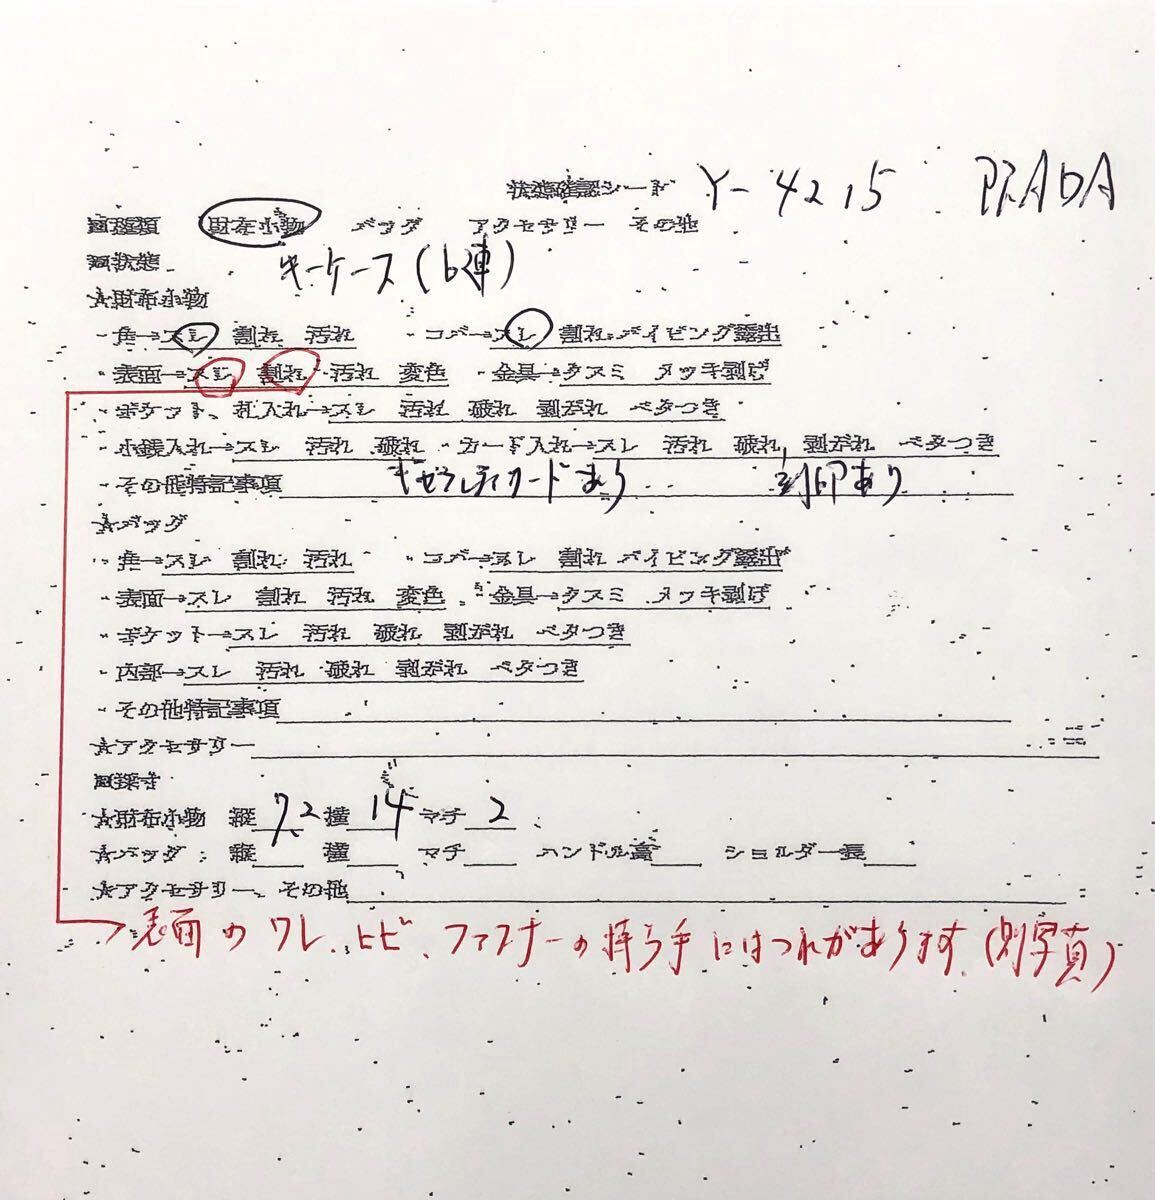 状態確認シード Y-4215 PRADA
回種類 財布小物 バッグ アクセサリー その他
回状態 キーケース(6連)
☆財布小物
・角→スレ 割れ 汚れ ・コバ→スレ 割れ パイピング露出
・表面→スレ 割れ 汚れ 変色 ・金具→クスミ メッキ剥げ
・ポケット、札入れ→スレ 汚れ 破れ 剥がれ ベタつき
・小銭入れ→スレ 汚れ 破れ ・カード入れ→スレ 汚れ 破れ 剥がれ ベタつき
・その他特記事項 ギャランティカードあり 刻印あり
☆バッグ
・角→スレ 割れ 汚れ ・コバ→スレ 割れ パイピング露出
・表面→スレ 割れ 汚れ 変色 ・金具→クスミ メッキ剥げ
・ポケット→スレ 汚れ 破れ 剥がれ ベタつき
・内部→スレ 汚れ 破れ 剥がれ ベタつき
・その他特記事項
☆アクセサリー
回採寸
☆財布小物 縦 7.2 横 14 マチ 2
☆バッグ 縦 横 マチ ハンドル高 ショルダー長
☆アクセサリー、その他
表面のワレ、ヒビ、ファスナーの持ち手にほつれがあります(別写真)